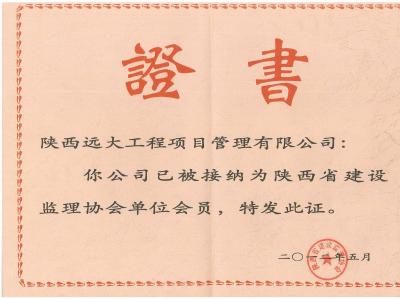 證書
陕西远大工程项目管理有限公司：
你公司已被接纳为陕西省建设
监理协会单位会员，特发此证。
年五月